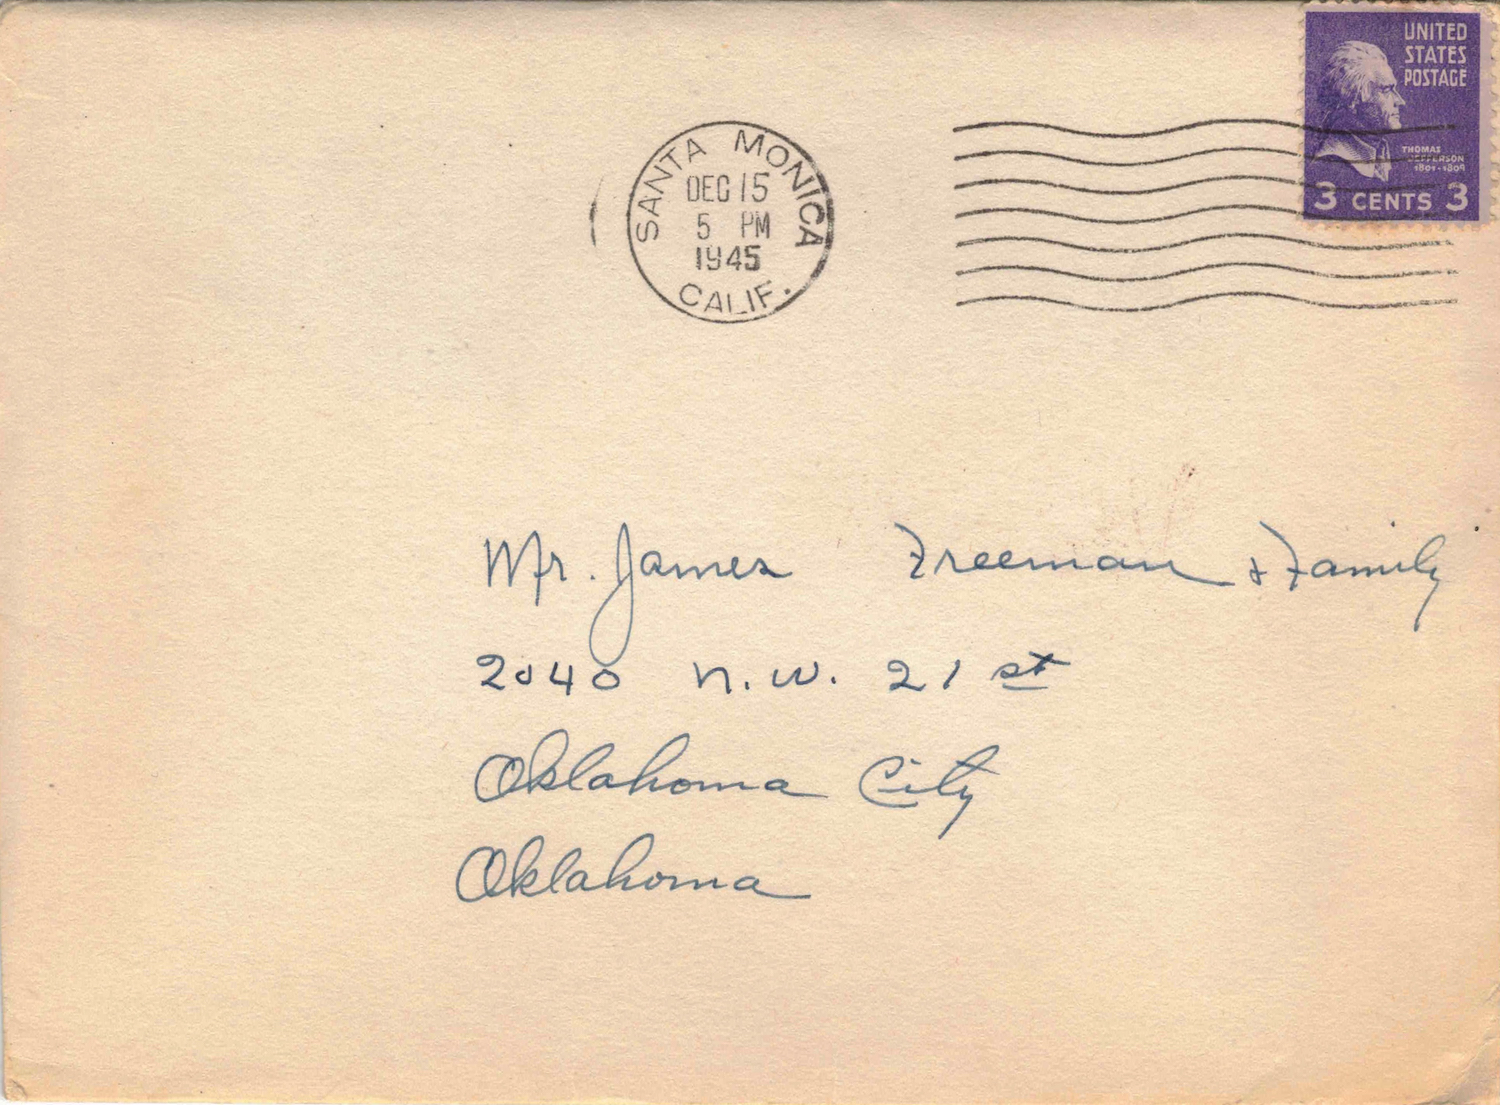 UNITED
STATES
POSTAGE
THOMAS
JEFFERSON
1801-1809
3 CENTS 3
SANTA MONICA
DEC 15
5 PM
1945
CALIF.
Mr. James Freeman & Family
2040 N.W. 21 st
Oklahoma City
Oklahoma